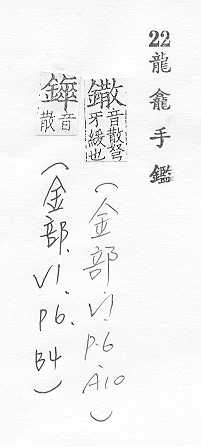 22龍龕手鑑
鏾音散弩牙緩也
(金部.V1.P.6.A10)
鏟音散
(金部.V1.P6.B4)